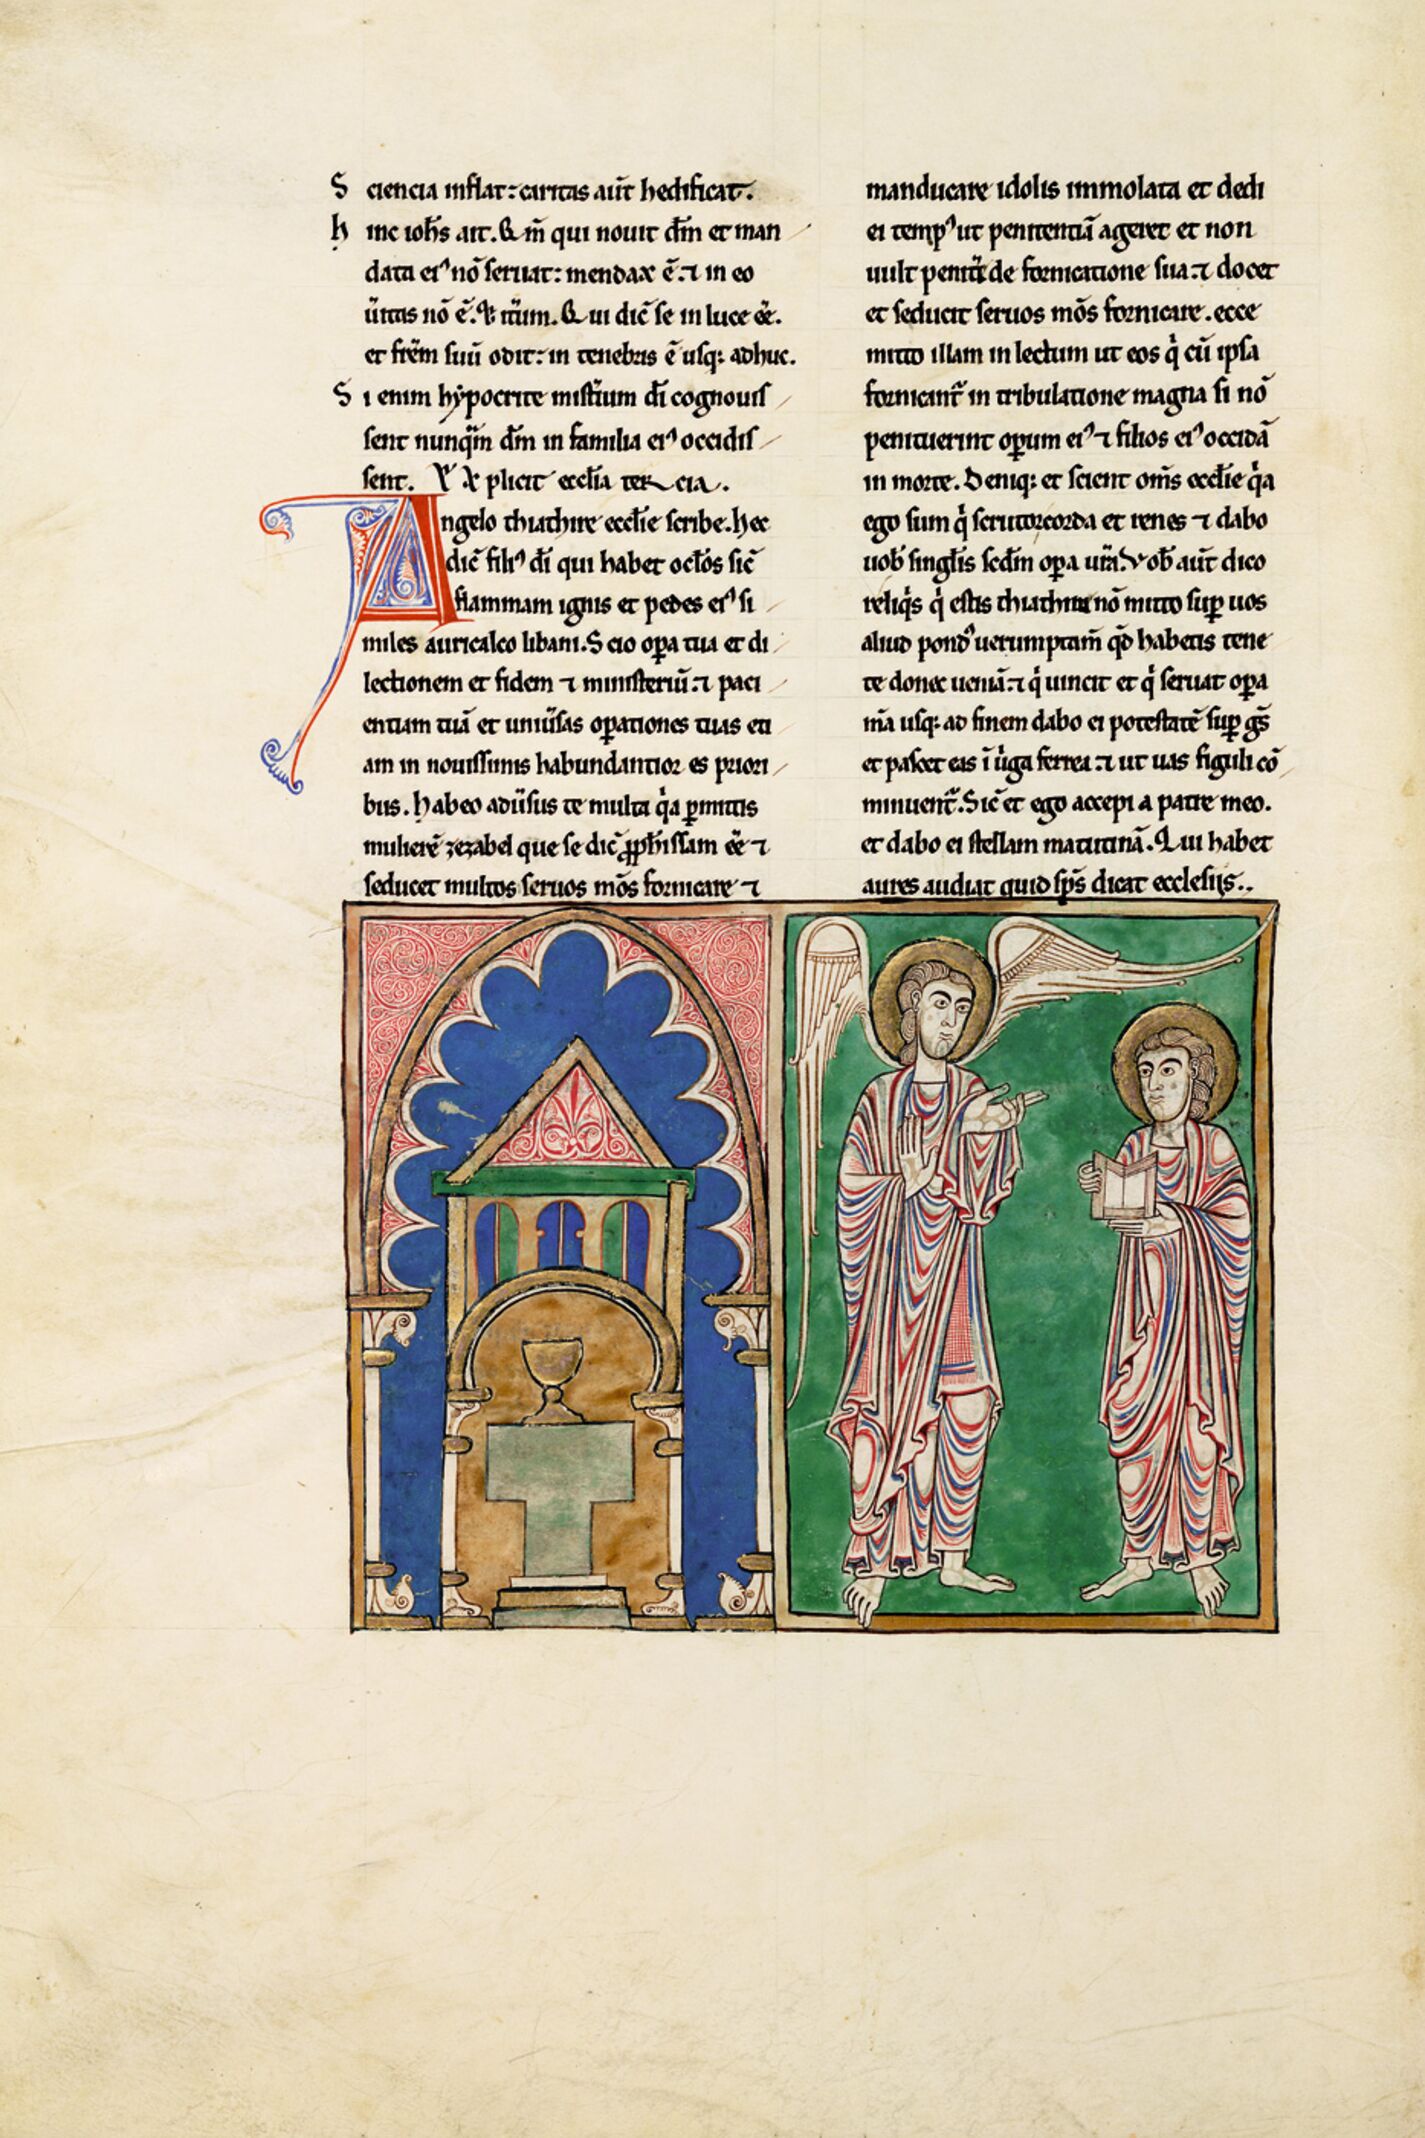 Sciencia inflat: caritas aut̄ hedificat.
hinc ioh̄s ait. Qm̄ qui nouit dm̄ et man
data ei᾽ nō seruat: mendax ē. ⁊ in eo
ūitas nō ē. Et it̄um. Qui dic̄ se in luce eē.
et frēm suū odit: in tenebris ē usq: adhuc.
Si enim hẏpocrite mist̄ium dī cognouis
sent nunq̄m dm̄ in familia ei᾽ occidis
sent. Explicit eccl̄ia tercia.
Angelo thiathire eccl̄ie scribe. hec
dic̄ fili᾽ dī qui habet ocl̄os sic̄
flammam ignis et pedes ei᾽ si
miles auricalco libani. Scio oꝑa tua et di
lectionem et fidem ⁊ ministeriū. ⁊ paci
entiam tuā et uniūsas oꝑationes tuas eti
am in nouissimis habundantior es priori
bus. habeo adūsus te multa qͥa ꝑmittis
mulierē zezabel que se dic̄ ꝓph̄issam eē ⁊
seducet multos seruos mōs fornicare ⁊
manducare idolis immolata et dedi
ei temp᾽ ut penitentiā ageret et non
uult penit̄i de fornicatione sua. ⁊ docet
et seducit seruos mōs fornicare. ecce
mitto illam in lectum ut eos qͥ cū ipsa
fornicant̄ in tribulatione magna si nō
penituerint oꝑum ei᾽ ⁊ filios ei᾽ occidā
in morte. Deniq: et scient om̄s eccl̄ie qͥa
ego sum qͥ scrutor corda et renes ⁊ dabo
uob̄ singl̄is scdm̄ oꝑa ur̄a. Vob̄ aut̄ dico
reliqͥs qͥ estis thiathire nō mitto suꝑ uos
aliud pond᾽ uerumptam̄ qd̄ habetis tene
te donec ueniā. ⁊ qͥ uincit et qͥ seruat oꝑa
m̄a usq: ad finem dabo ei potestatē suꝑ gs̄
et pascet eas ī uͥga ferrea. ⁊ ut uas figuli cō
minuent̄. Sic̄ et ego accepi a patre meo.
et dabo ei stellam matutinā. Qui habet
aures audiat quid sps̄ dicat ecclesiis..